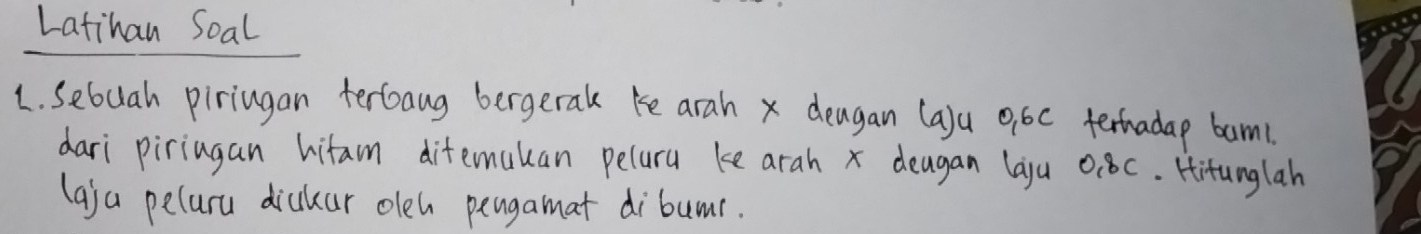 Latihan Soal
1. Sebuah piringan terbang bergerak ke arah x dengan laju 0,6c terhadap bumi.
dari piringan hitam ditemukan peluru ke arah x dengan laju 0,8c. Hitunglah
laju peluru diukur oleh pengamat di bumi.